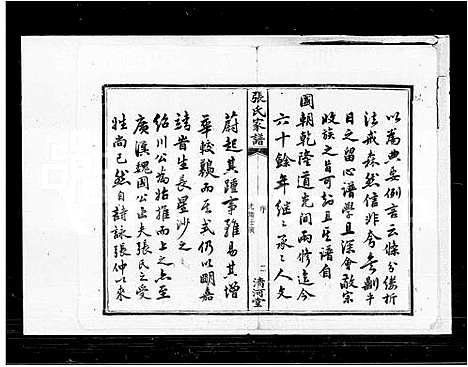 以爲典要例言云條分縷析
法戒森然信非今
日之留心譜學且深會敬宗
收族之旨者可知且譜自
國朝乾隆道光間兩修迄今
六十餘年繼繼承承人文
張氏家譜
序
二
清河堂
蔚起其踵事雖易其增
華較難而體式仍以明嘉
靖前生長星沙之
紹川公爲始推而上之至
廣漢魏國公亦夫張氏之受
姓尚已然自詩詠張仲以來